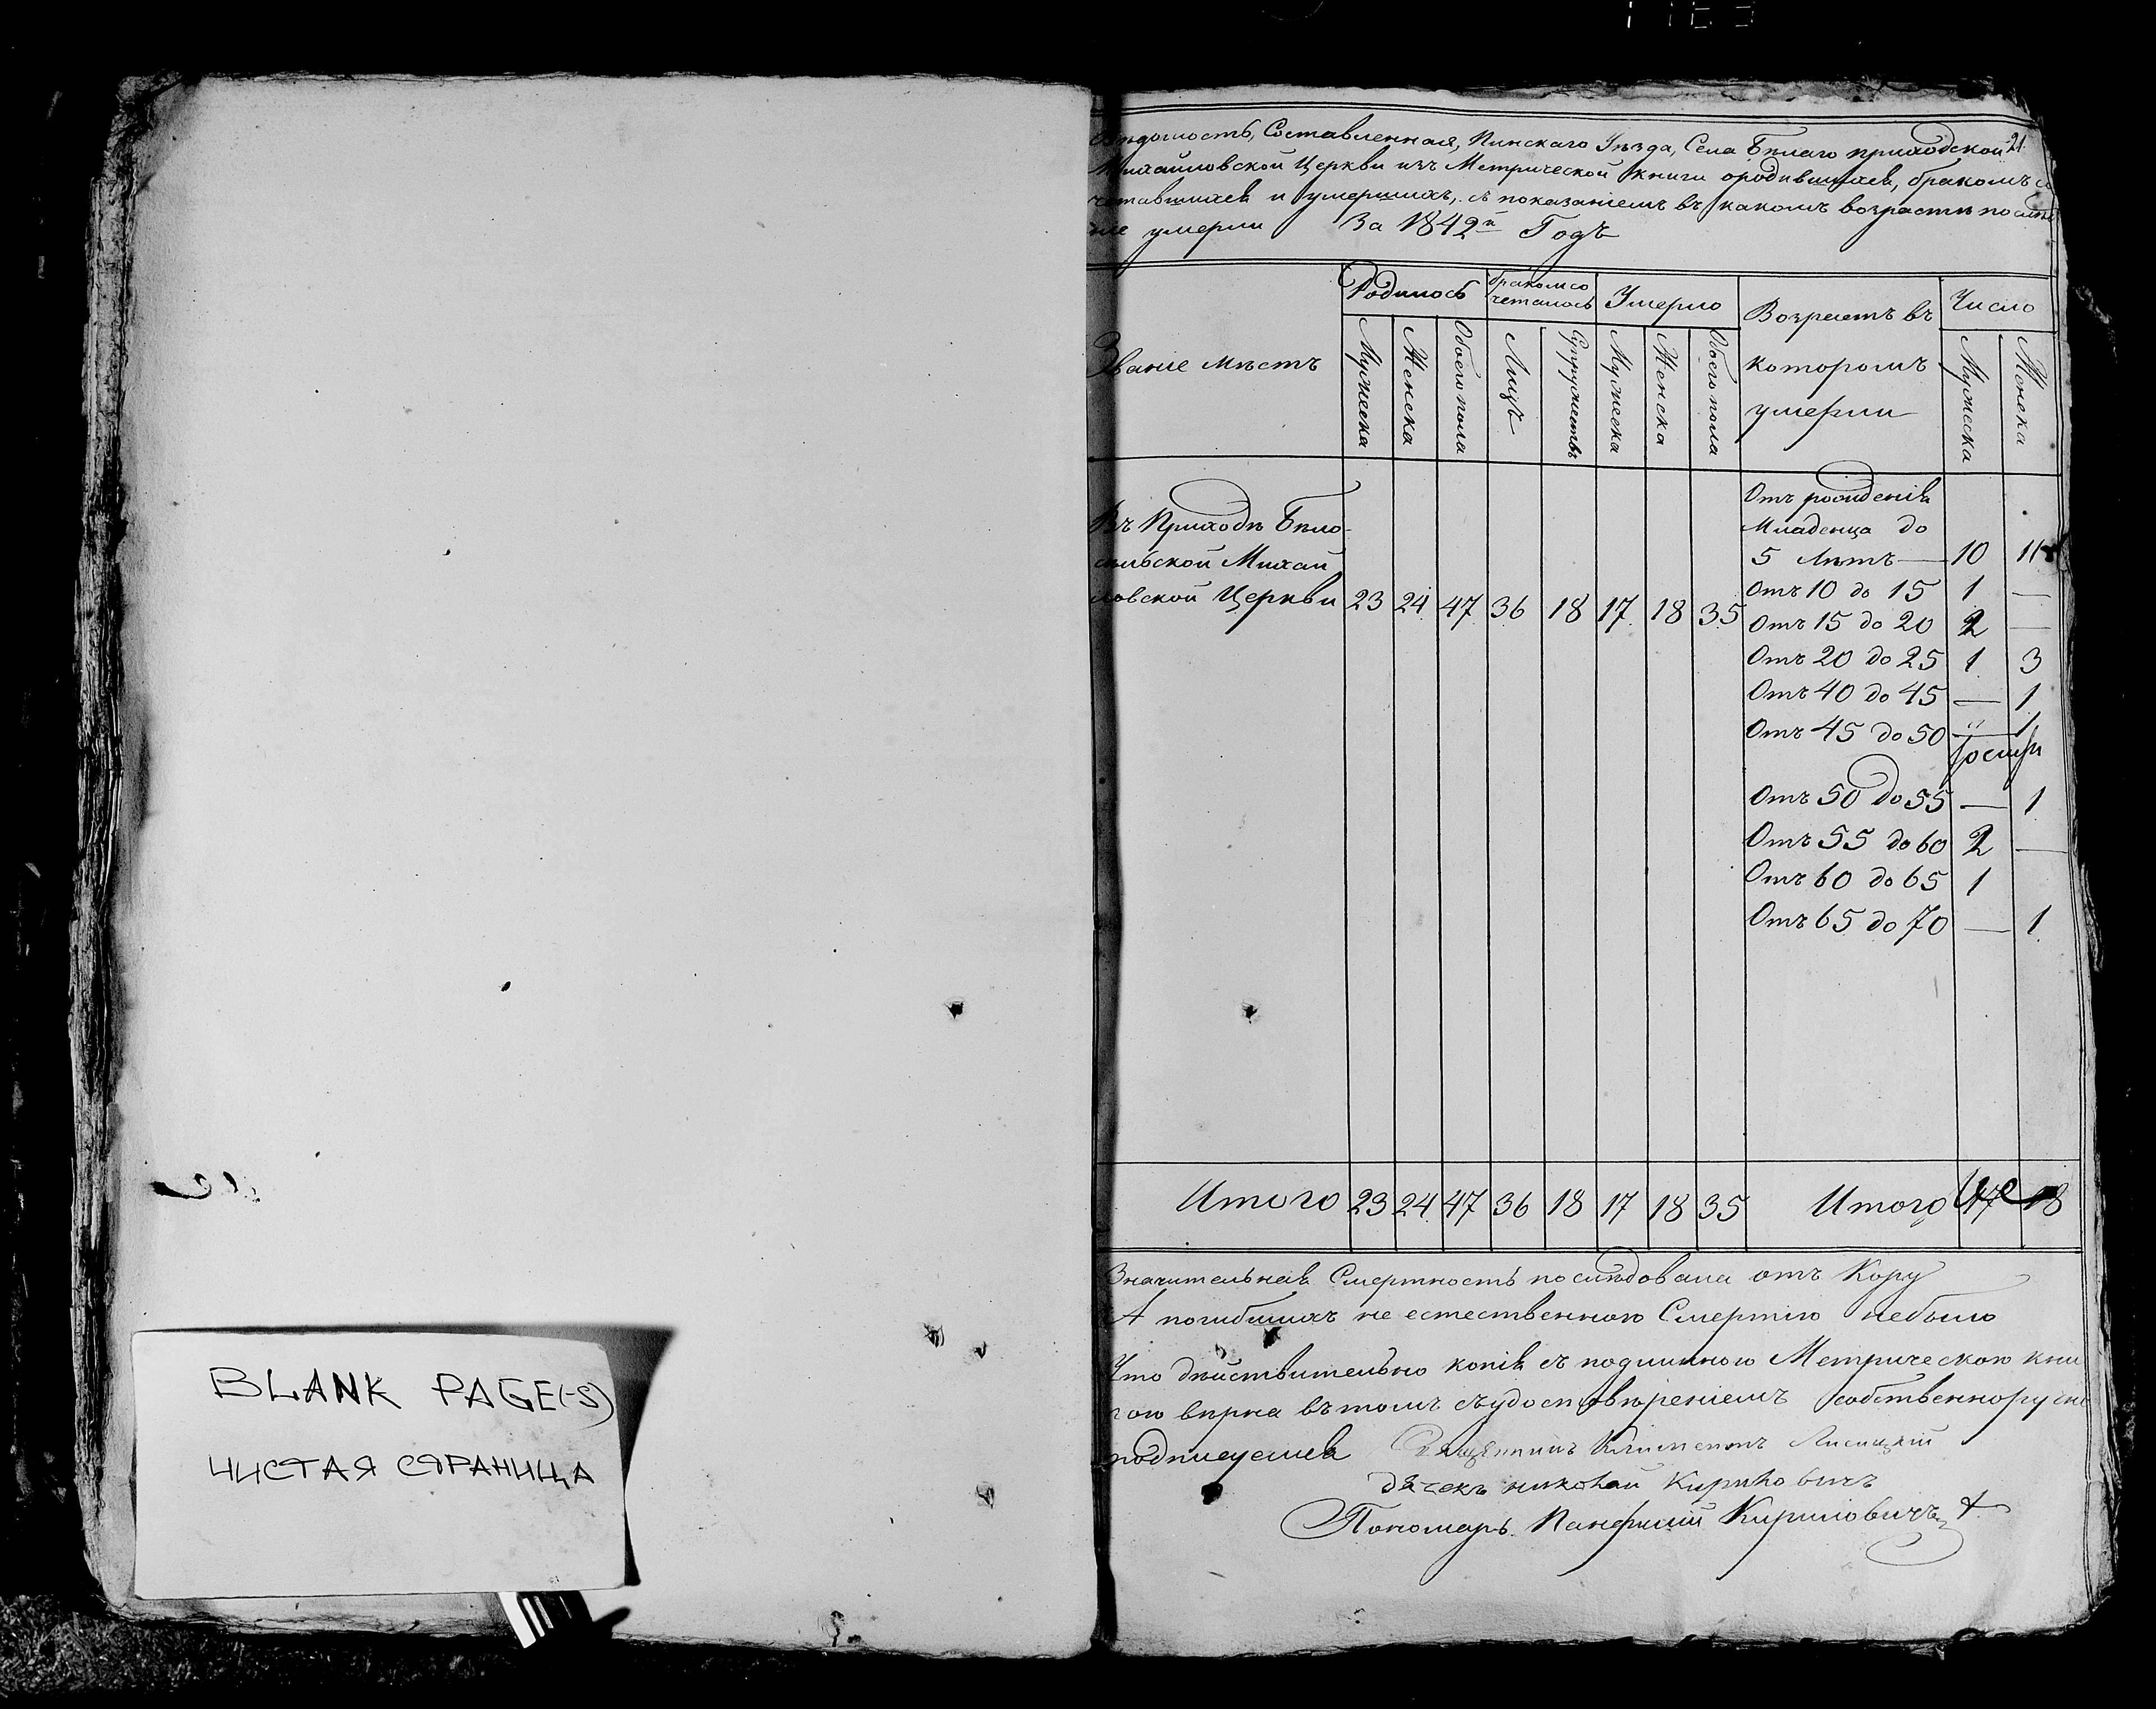 Вѣдомость, Составленная, Пинскаго Уѣзда, Села Бѣлаго приходской 21
Михайловской Церкви изъ Метрической книги ородившихся, бракомъ со
четавшихся и умершихъ, съ показаніемъ въ какомъ возрастѣ послѣд
ніе умерли За 1842й Годъ
Званіе мѣстъ
Родилось
Мужеска
Женска
Обоего пола
бракомъ со
четалось
Лицъ
Супружествъ
Умерло
Мужеска
Женска
Обоего пола
Возрастъ въ
которомъ
умерли
Число
Мужеска
Женска
Въ Приходѣ Бѣло-
сельской Михай
ловской Церкви 23 24 47 36 18 17 18 35
Отъ рожденія
Младенца до
5 Лѣтъ — 10 11
Отъ 10 до 15 1 —
Отъ 15 до 20 2 —
Отъ 20 до 25 1 3
Отъ 40 до 45 — 1
Отъ 45 до 50 — 1
Отъ 50 до 55 — 1
Отъ 55 до 60 2 —
Отъ 60 до 65 1
Отъ 65 до 70 — 1
Итого 23 24 47 36 18 17 18 35 Итого 17 18
Значительная Смертность послѣдовала отъ Кору
А погибшихъ не естественною Смертію небыло
Что дѣйствительно копія съ подлинною Метрическою кни
гою вѣрна въ томъ съ удостовѣреніемъ собственноручно
подписуемся Священникъ Климентъ Лисицкій
дячекъ николай Кириловичъ
Пономарь Панфилій Кириловичъ
BLANK PAGE(-S)
ЧИСТАЯ СТРАНИЦА